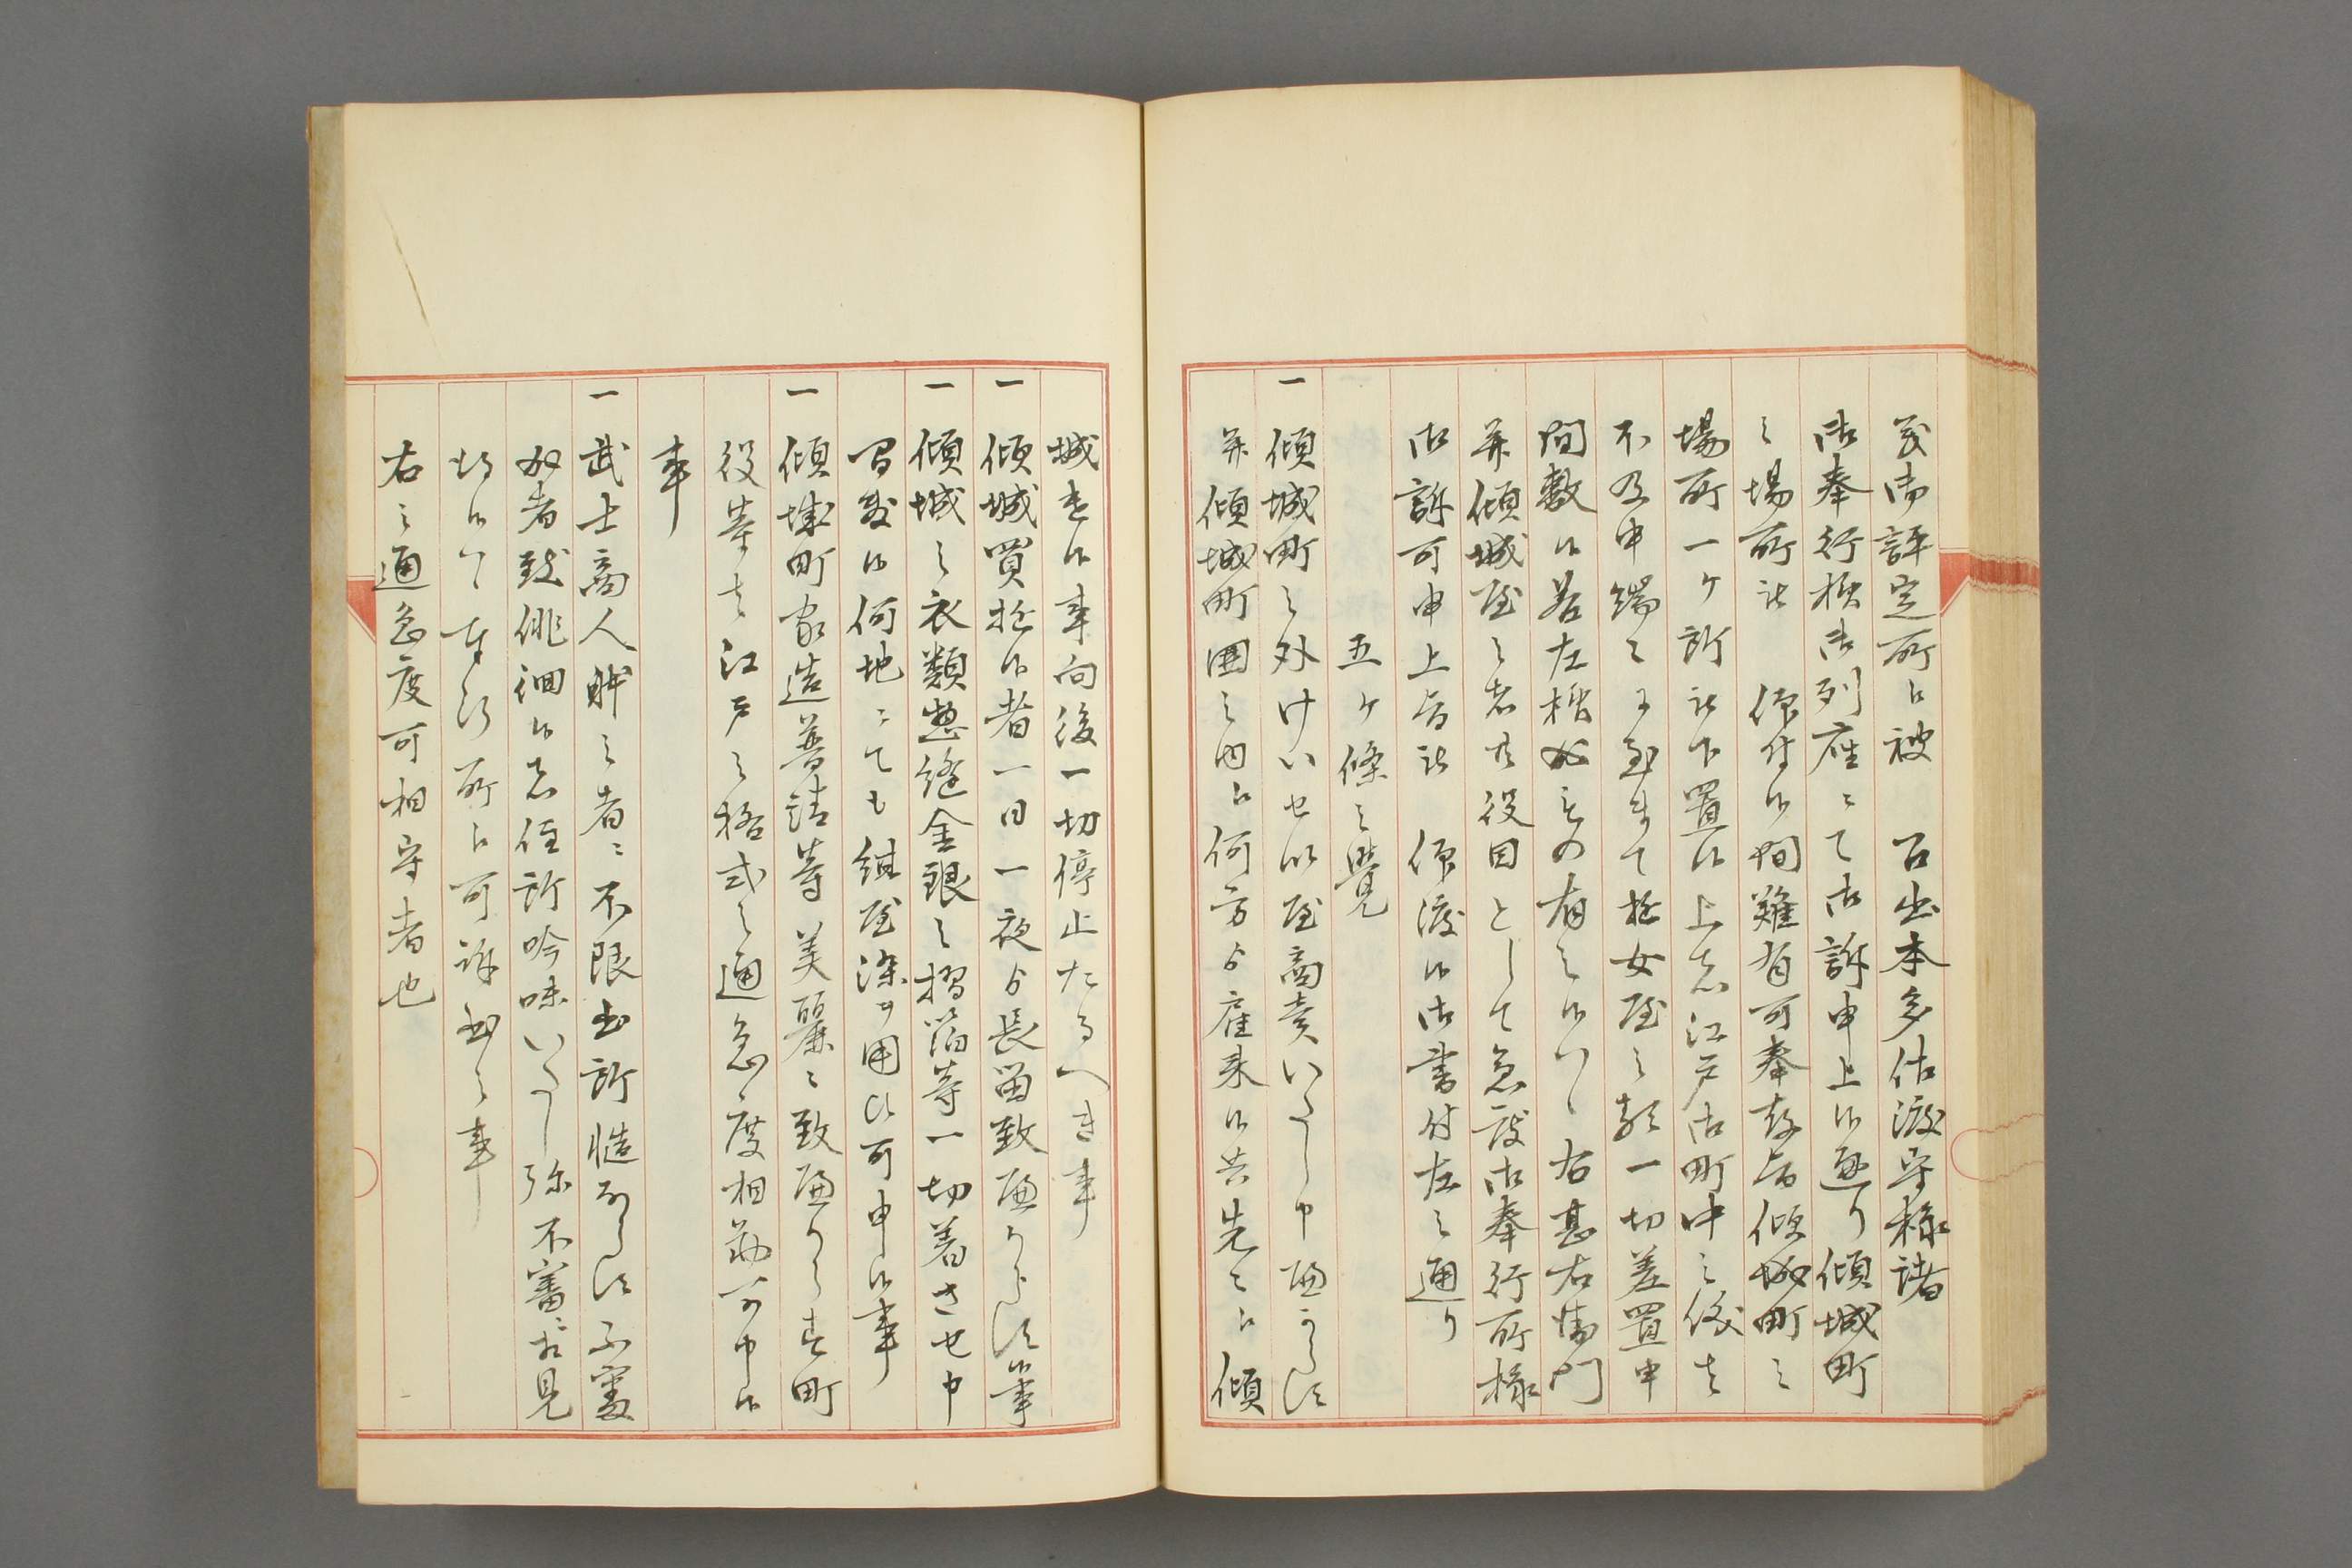 御評定所江被　召出本多佐渡守様諸
御奉行様御列座ニて御訴申上候通り傾城町
之場所被　仰付候間難有可奉存旨傾城町之
場所一ケ所被下置候上者江戸御町中之儀者
不及申端々ニ至まて遊女屋之類一切差置申
間敷候若左様如きの有之候ハヽ右甚右衛門
并傾城屋之者共役目として急度御奉行所様
御訴可申上旨被　仰渡候御書付左之通り
五ケ條之覚
一 傾城町之外けいせい屋商売いたし申間敷候
并傾城町囲之内江何方ゟ雇来候共先々江傾
城遣候事向後一切停止たるへき事
一 傾城買遊候者一日一夜ゟ長留致間敷候事
一 傾城之衣類惣縫金銀之摺箔等一切着させ申
間敷候何地ニても紺屋染ヲ用ひ可申候事
一 傾城町家造普請等美麗ニ致間敷候町
役等者江戸之格式之通急度相勤可申候
事
一 武士商人躰之者ニ不限出所慥ならす不審
成者致徘徊候者住所吟味いたし弥不審ニ相見
候ハヽ奉行所江可訴出之事
右之通急度可相守者也